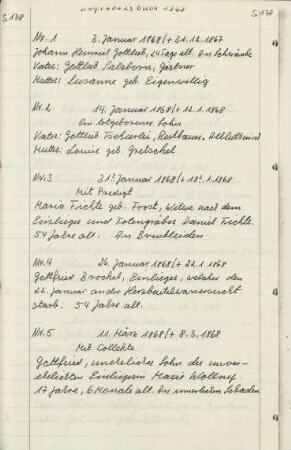 Begräbnisse 1868
S. 178
S. 178
Nr. 1 3. Januar 1868/+ 31.12.1867
Johann Heinrich Gottlieb, 14 Tage alt. An Schwäche
Vater: Gottlieb Salaborn, Gärtner
Mutter: Susanne geb. Eigenwillig
Nr. 2 14. Januar 1868/+ 12.1.1868
Ein totgeborener Sohn
Vater: Gottlieb Tschierlei, Restbauer,
Mutter: Louise geb. Gretschel
Nr. 3 31. Januar 1868/+ 18.1.1868
Mit Predigt
Maria Fichte geb. Frost, Witwe nach dem
Einlieger und Totengräber Daniel Fichte.
54 Jahre alt. An Brustleiden
Nr. 4 26. Januar 1868/+ 22.1.1868
Gottfried Brochol, Einlieger, welcher den
22. Januar an der Herzbeutelwassersucht
starb. 54 Jahre alt.
Nr. 5 11. März 1868/+ 8.3.1868
Mit Collekte
Gottfried, unehelicher Sohn der unver-
ehelichten Einliegerin Marie Wollny.
17 Jahre, 6 Monate alt. An innerlichem Schaden.